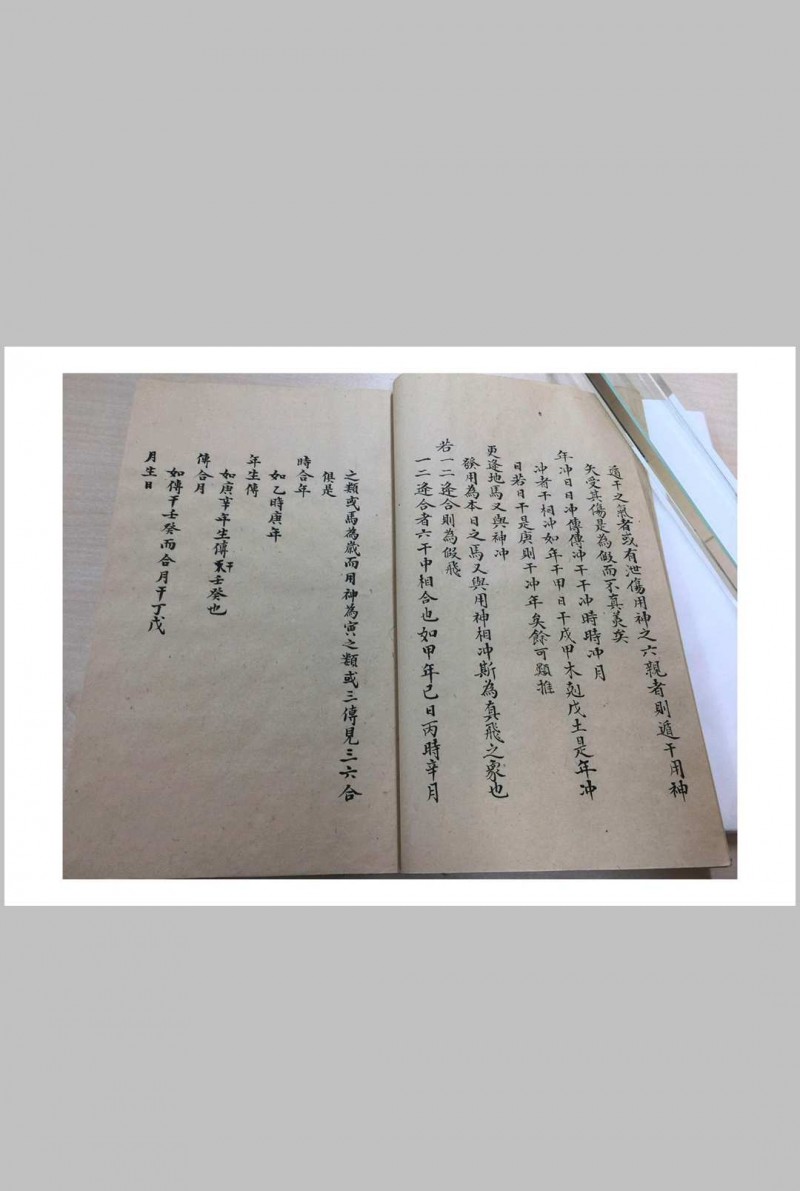 遁干之氣者或有泄傷用神之六親者則遁干用神
矢受其傷是為假而不真美矣
年冲日日冲傳傳冲干干冲時時冲月
冲者干相冲如年干甲日干戊甲木尅戊土是年冲
日若日干是庚則干冲年矣餘可類推
更逢地馬又與神冲
發用為本日之馬又與用神相冲斯為真飛之象也
若一二逢合則為假飛
一二逢合者六干中相合也如甲年己日丙時辛月
之類或馬為歲而用神為寅之類或三傳見三六合
俱是
時合年
如乙時庚年
年生傳
如庚辛年生傳干壬癸也
傳合月
如傳干壬癸而合月干丁戊
月生日